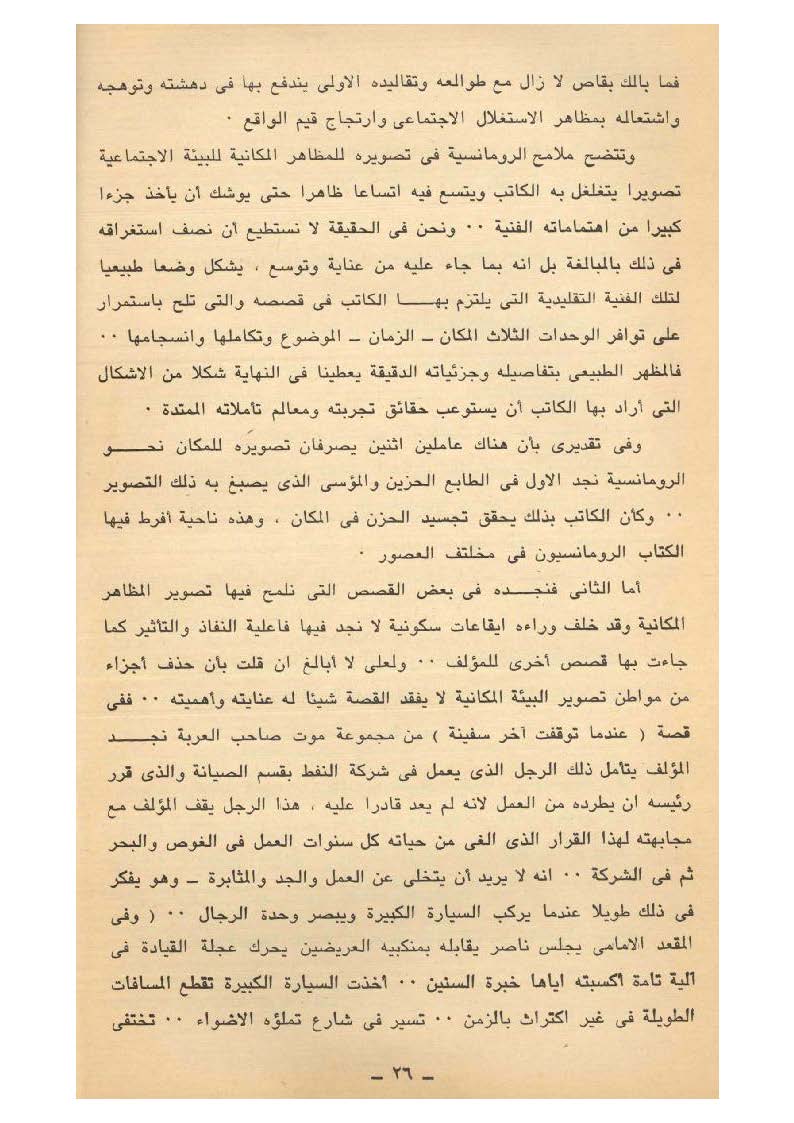 فما بالك بقاص لا زال مع طوالعه وتقاليده الاولى يندفع بها فى دهشته وتوهجه
واشتعاله بمظاهر الاستغلال الاجتماعى وارتجاج قيم الواقع ٠
وتتضح ملامح الرومانسية فى تصويره للمظاهر المكانية للبيئة الاجتماعية
تصويرا يتغلغل به الكاتب ويتسع فيه اتساعا ظاهرا حتى يوشك أن يأخذ جزءا
كبيرا من اهتماماته الفنية ٠٠ ونحن فى الحقيقة لا نستطيع أن نصف استغراقه
فى ذلك بالمبالغة بل انه بما جاء عليه من عناية وتوسع ، يشكل وضعا طبيعيا
لتلك الفنية التقليدية التى يلتزم بهـــا الكاتب فى قصصه والتى تلح باستمرار
على توافر الوحدات الثلاث المكان ــ الزمان ــ الموضوع وتكاملها وانسجامها ٠٠
فالمظهر الطبيعى بتفاصيله وجزئياته الدقيقة يعطينا فى النهاية شكلا من الاشكال
التى أراد بها الكاتب أن يستوعب حقائق تجربته ومعالم تأملاته الممتدة ٠
وفى تقديرى بأن هناك عاملين اثنين يصرفان تصويره للمكان نحـــو
الرومانسية نجد الاول فى الطابع الحزين والمؤسى الذى يصبغ به ذلك التصوير
٠٠ وكأن الكاتب بذلك يحقق تجسيد الحزن فى المكان ، وهذه ناحية أفرط فيها
الكتاب الرومانسيون فى مختلف العصور ٠
أما الثانى فنجـــده فى بعض القصص التى نلمح فيها تصوير المظاهر
المكانية وقد خلف وراءه ايقاعات سكونية لا نجد فيها فاعلية النفاذ والتأثير كما
جاءت بها قصص أخرى للمؤلف ٠٠ ولعلى لا أبالغ ان قلت بأن حذف أجزاء
من مواطن تصوير البيئة المكانية لا يفقد القصة شيئا له عنايته وأهميته ٠٠ ففى
قصة ( عندما توقفت آخر سفينة ) من مجموعة موت صاحب العربة نجـــد
المؤلف يتأمل ذلك الرجل الذى يعمل فى شركة النفط بقسم الصيانة والذى قرر
رئيسه ان يطرده من العمل لانه لم يعد قادرا عليه ، هذا الرجل يقف المؤلف مع
مجابهته لهذا القرار الذى الغى من حياته كل سنوات العمل فى الغوص والبحر
ثم فى الشركة ٠٠ انه لا يريد أن يتخلى عن العمل والجد والمثابرة ــ وهو يفكر
فى ذلك طويلا عندما يركب السيارة الكبيرة ويبصر وحدة الرجال ٠٠ ( وفى
المقعد الامامى يجلس ناصر يقابله بمنكبيه العريضين يحرك عجلة القيادة فى
آلية تامة أكسبته اياها خبرة السنين ٠٠ أخذت السيارة الكبيرة تقطع المسافات
الطويلة فى غير اكتراث بالزمن ٠٠ تسير فى شارع تملؤه الاضواء ٠٠ تختفى
ــ ٢٦ ــ